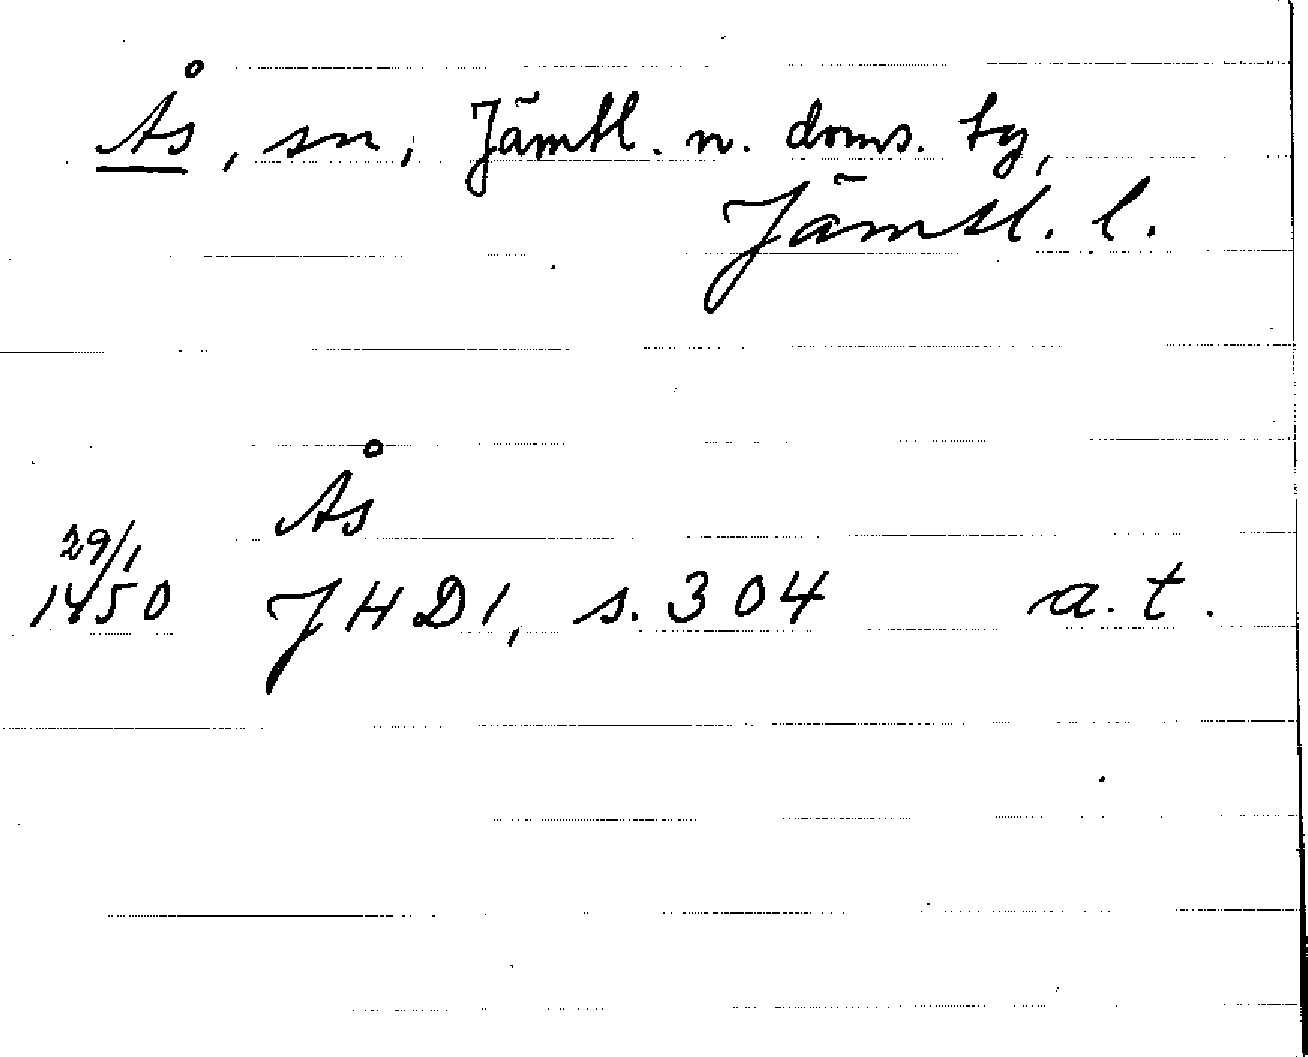 Ås, sn, Jämtl. n. doms. tg,
Jämtl. l.
Ås
29/1
1450 JHD1, s. 304 a. t.